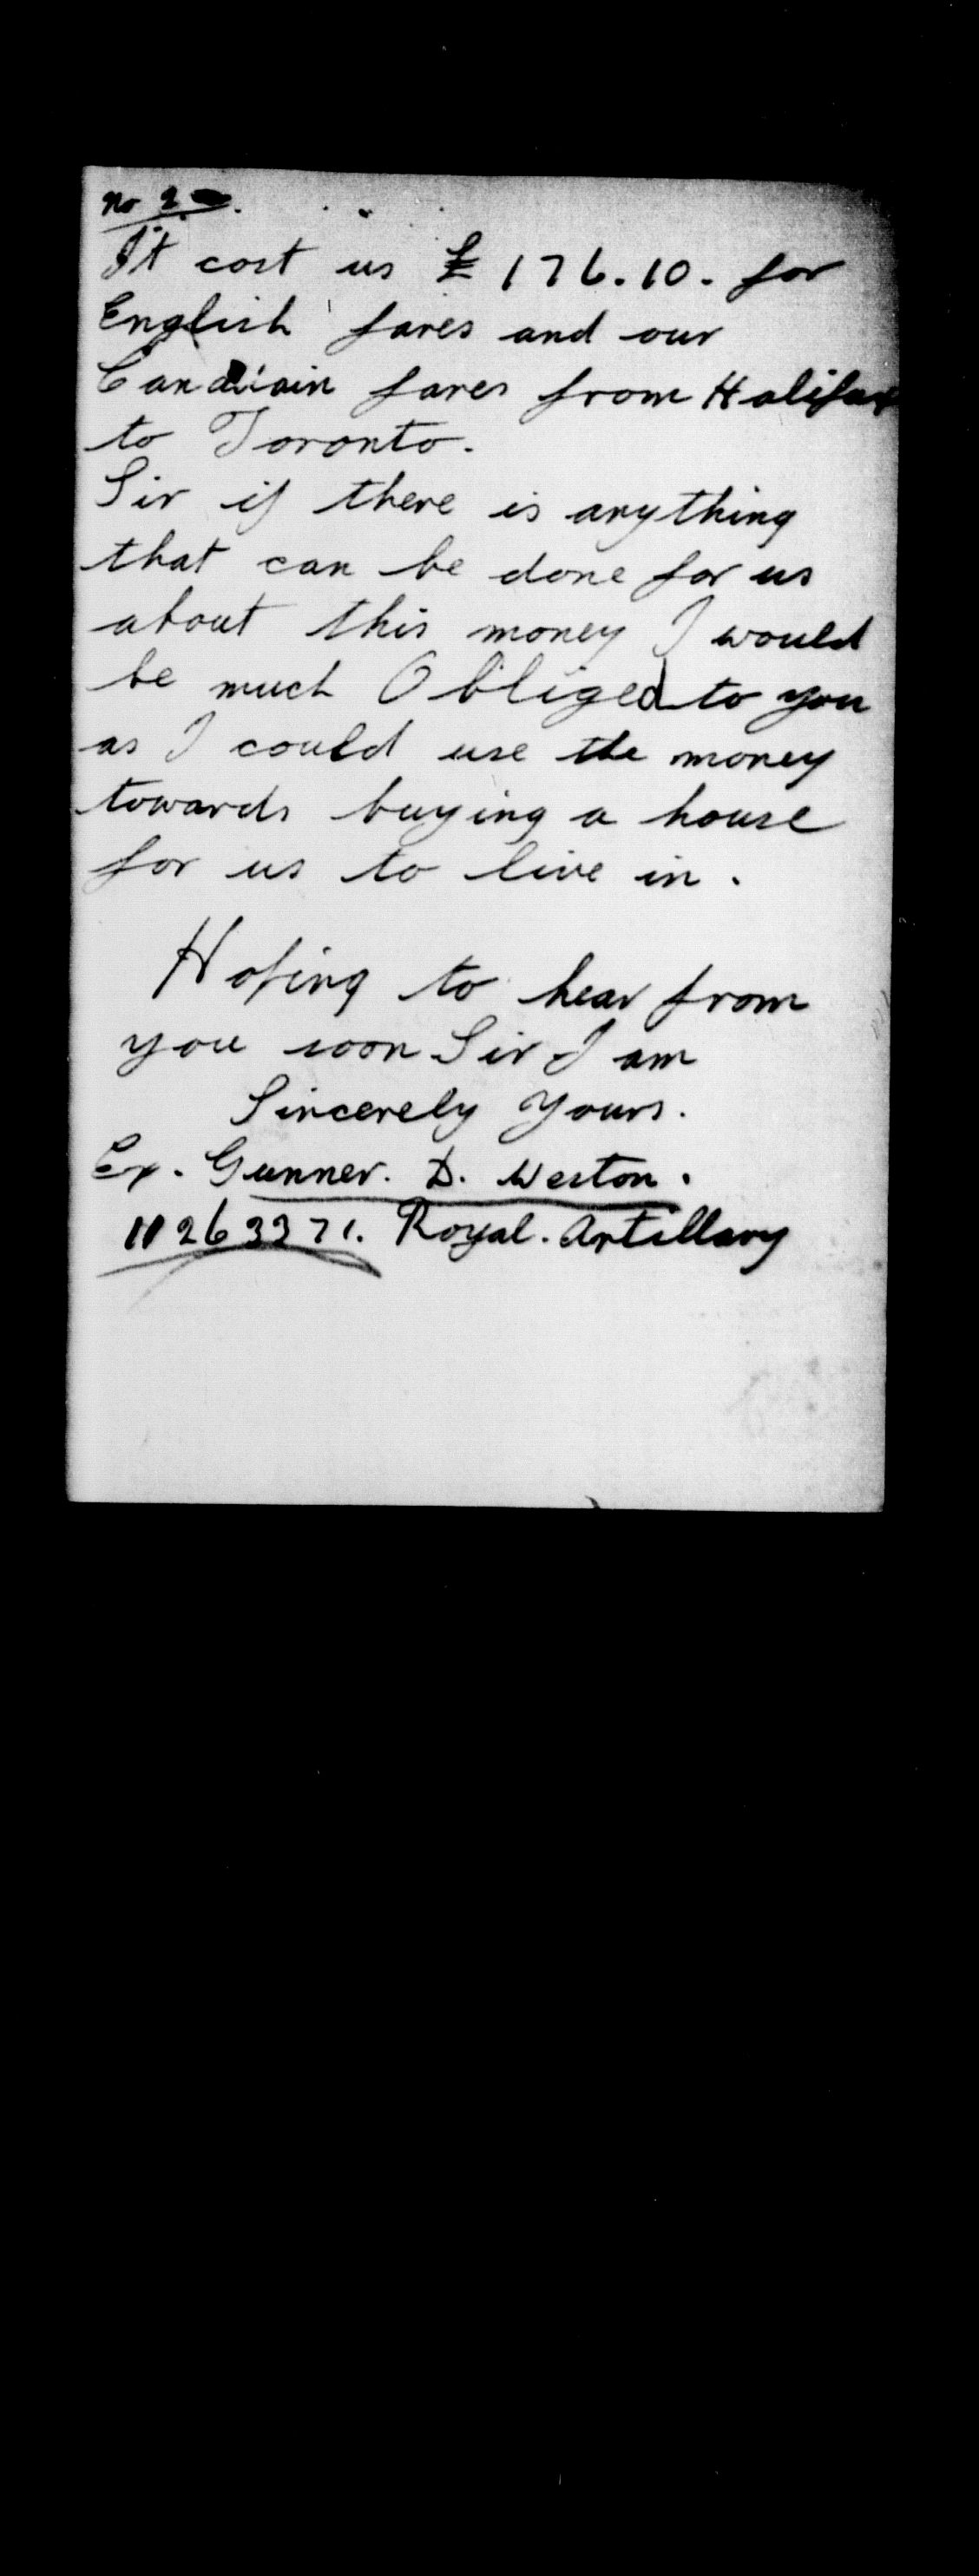 No 2.
It cost us £176.10. for
English fares and our
Canadiain fares from Halifax
to Toronto.
Sir if there is anything
that can be done for us
about this money I would
be much Obliged to you
as I could use the money
towards buying a house
for us to live in.
Hoping to hear from
you soon Sir I am
Sincerely Yours.
Ex. Gunner. D. Weston.
11263371. Royal. Artillary